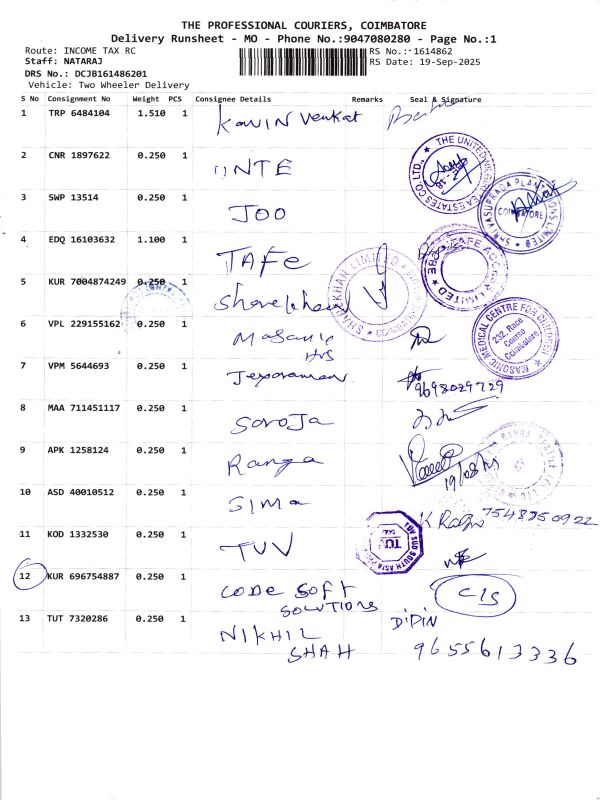 THE PROFESSIONAL COURIERS, COIMBATORE
Delivery Runsheet - MO - Phone No.:9047080280 - Page No.:1
Route: INCOME TAX RC RS No.: 1614862
Staff: NATARAJ RS Date: 19-Sep-2025
DRS No.: DCJB161486201
Vehicle: Two Wheeler Delivery
S No Consignment No Weight PCS Consignee Details Remarks Seal & Signature
1 TRP 6484104 1.510 1 Kavin Venkat
2 CNR 1897622 0.250 1 UNTE
THE UNITED ESTATES CO LTD.,
3 SWP 13514 0.250 1 JOO
COIMBATORE
4 EDQ 16103632 1.100 1 TAFE
5 KUR 7004874249 0.250 1
6 VPL 229155162 0.250 1 Masanic Hrs
MASONIC MEDICAL CENTRE FOR CHILDREN
232, Race Course Coimbatore
7 VPM 5644693 0.250 1 Jeyaraman 9698029729
8 MAA 711451117 0.250 1 Saroja
9 APK 1258124 0.250 1 Ranga
10 ASD 40010512 0.250 1 Sima K 7548350922
11 KOD 1332530 0.250 1 TUV
TUV SUD SOUTH ASIA
12 KUR 696754887 0.250 1 CODE SOFT SOLUTIONS C1S
13 TUT 7320286 0.250 1 NIKHIL SHAH DIPIN
9655613336